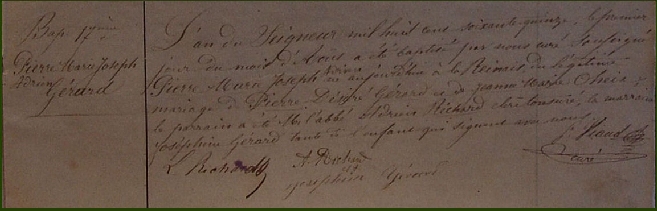 Bap. 17ème
Pierre Marie Joseph
Adrien
Gérard
L'an du Seigneur mil huit cent soixante quinze, le premier
jour du mois d'Août a été baptisé par nous curé soussigné
Pierre Marie Joseph Adrien né aujourd'hui à la du légitime
mariage de Pierre Désiré Gérard et de Jeanne Marie
le parrain a été M. l'abbé Adrien Richard clerc tonsuré, la marraine
Joséphine Gérard tante de l'enfant qui signent avec nous
L. Richard
A. Richard
Joséphine Gérard
curé